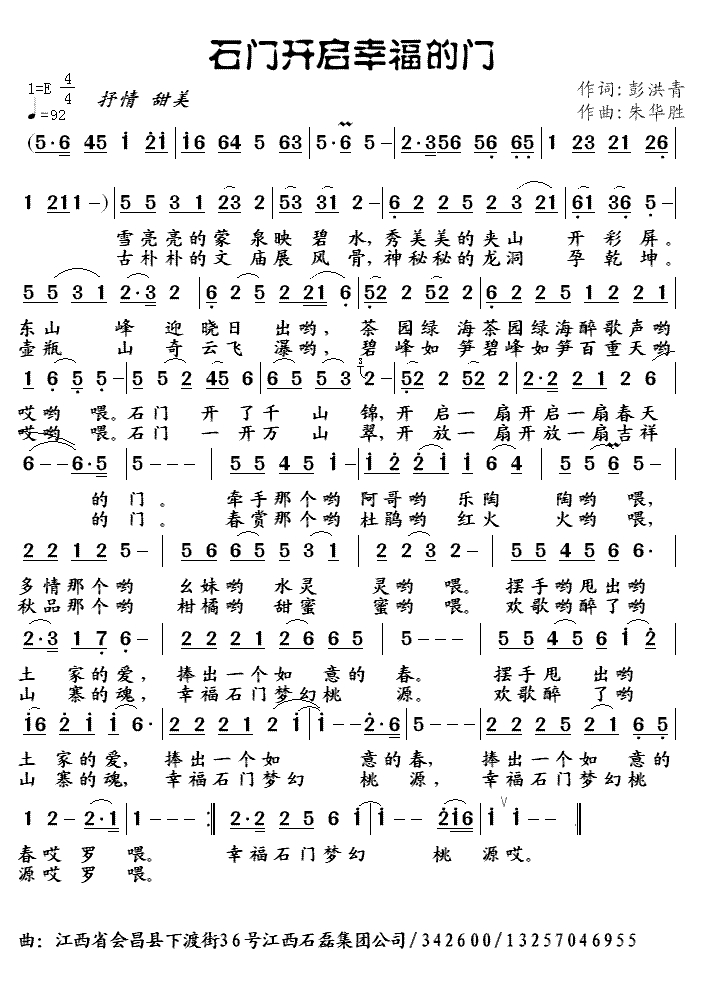 石门开启幸福的门
1=E 4/4
♩=92 抒情 甜美
作词:彭洪青
作曲:朱华胜
(5·6 45 1 21|16 64 5 63|5·6 5-|2·356 56 65|1 23 21 26|
1 211-)|5 5 3 1 23 2|53 31 2-|6 2 2 5 2 3 21|61 36 5-|
雪亮亮的蒙 泉映 碧 水,秀美美的夹山 开 彩 屏。
古朴朴的文 庙展 风 骨,神秘秘的龙洞 孕 乾 坤。
5 5 3 1 2·3 2|6 2 5 2 21 6|52 2 52 2|6 2 2 5 1 2 2 1|
东山 峰 迎 晓日 出哟, 茶 园绿 海茶园绿海醉歌声哟
壶瓶 山 奇 云飞 瀑哟, 碧 峰如 笋碧峰如笋百重天哟
1 6 5 5-|5 5 2 45 6|6 5 5 3 3 2-|52 2 52 2|2·2 2 1 2 6|
哎哟 喂。石门 开 了千 山 锦,开 启一 扇开启一扇春天
哎哟 喂。石门 一 开万 山 翠,开 放一 扇开放一扇吉祥
6--6·5|5---|5 5 4 5 1-|1 2 2 1 1 6 4|5 5 6 5-|
的 门。 牵手那个哟 阿哥哟 乐陶 陶哟 喂,
的 门。 春赏那个哟 杜鹃哟 红火 火哟 喂,
2 2 1 2 5-|5 6 6 5 5 3 1|2 2 3 2-|5 5 4 5 6 6·|
多情那个哟 幺妹哟 水灵 灵哟 喂。 摆手哟甩出哟
秋品那个哟 柑橘哟 甜蜜 蜜哟 喂。 欢歌哟醉了哟
2·3 1 7 6-|2 2 2 1 2 6 6 5|5---|5 5 4 5 6 1 2|
土 家的爱, 捧出一个如 意的 春。 摆手甩 出哟
山 寨的魂, 幸福石门梦幻桃 源。 欢歌醉 了哟
16 2 1 1 6·|2 2 2 1 2 1|1--2·6|5---|2 2 2 5 2 1 6 5|
土 家的爱, 捧出一个如 意的春, 捧出一个如 意的
山 寨的魂, 幸福石门梦幻 桃 源, 幸福石门梦幻桃
1 2-2·1|1---:‖ 2·2 2 5 6 1|1--216|1 1--‖
春哎 罗 喂。 幸福石门梦幻 桃 源哎。
源哎 罗 喂。
曲: 江西省会昌县下渡街36号江西石磊集团公司/342600/13257046955